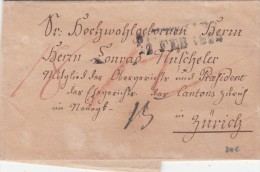 Sr. Hochwohlgeboren Herrn
Herrn Conrad Nüscheler
Mitglied des Obergerichts und Präsident
des Ehegerichts des Cantons Zürich
im Neuegt
in
Zürich
13